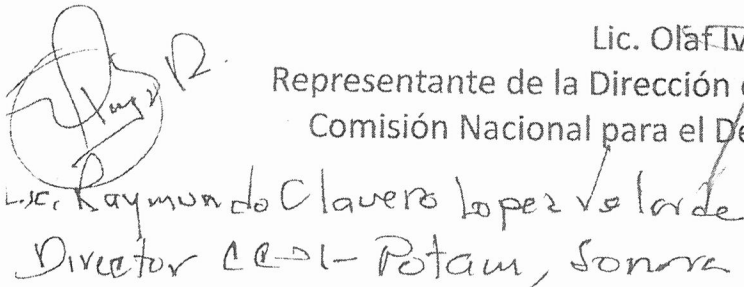 Lic. Olaf Iv
Representante de la Dirección
Comisión Nacional para el De
Lic. Raymundo Clavero Lopez Velarde
Director CCDI- Potam, Sonora